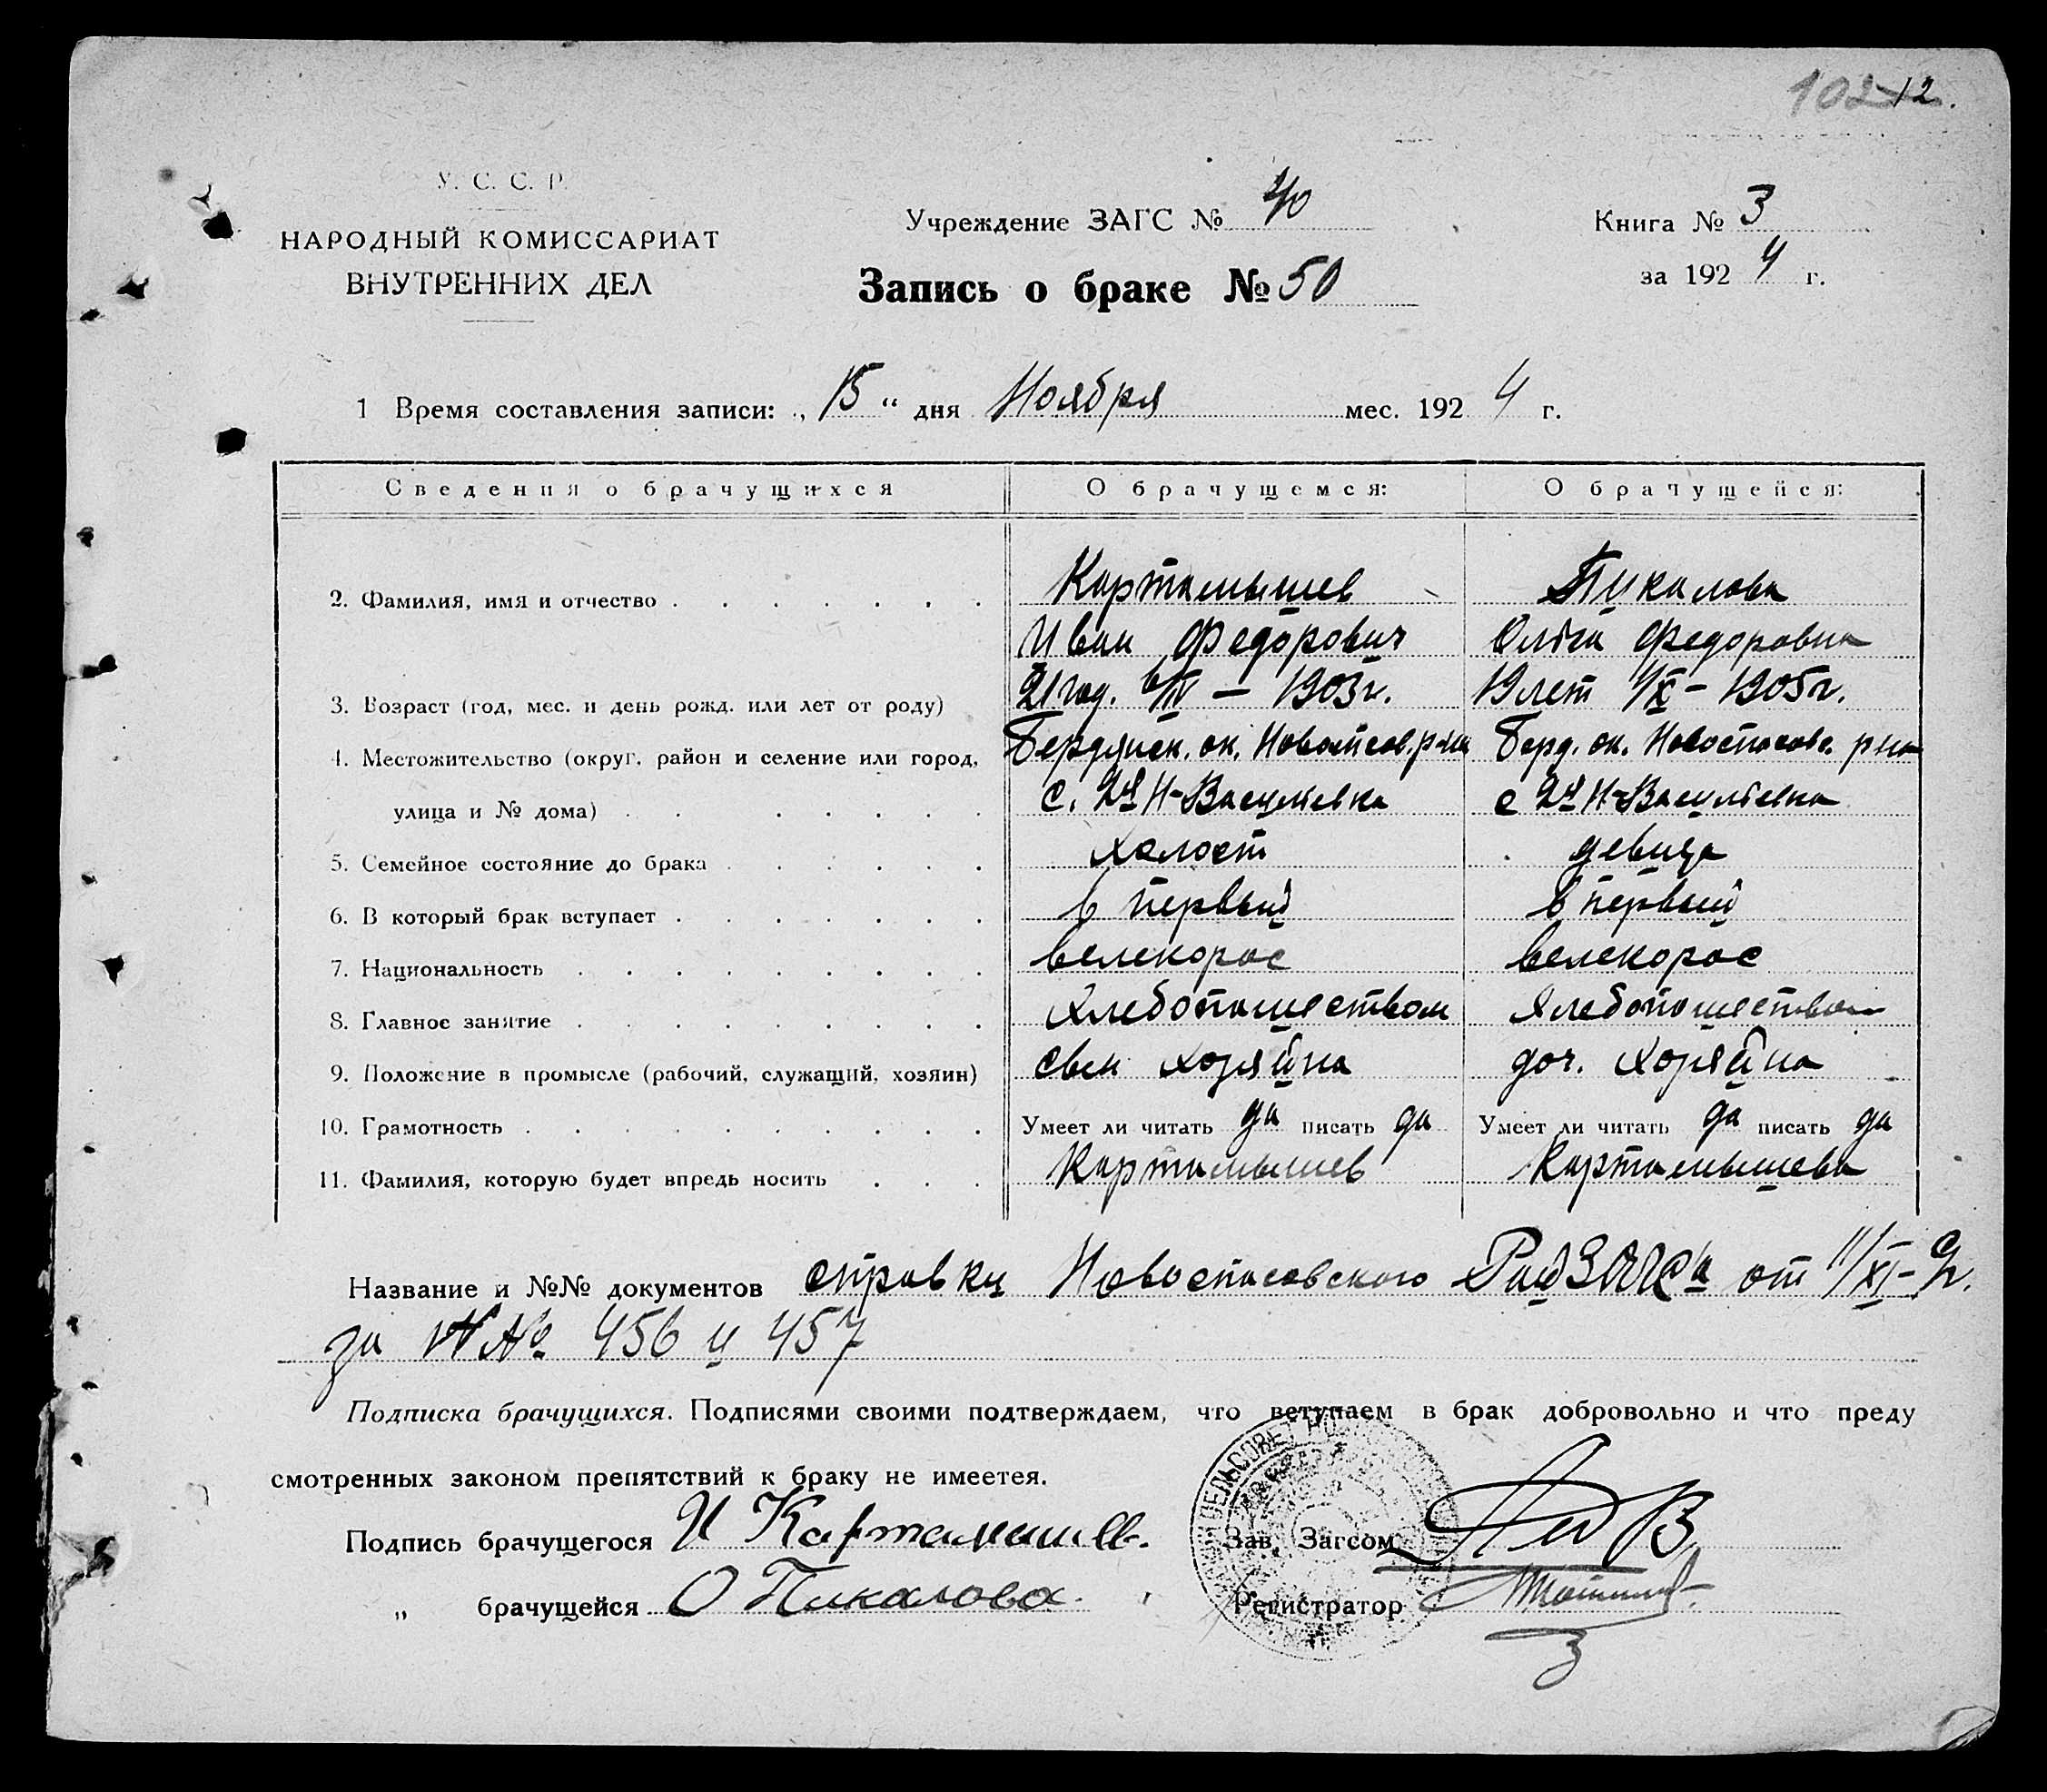 102 12.
У. С. С. Р.
НАРОДНЫЙ КОМИССАРИАТ
ВНУТРЕННИХ ДЕЛ
Учреждение ЗАГС № 40
Книга № 3
за 1924 г.
Запись о браке № 50
1 Время составления записи: „15“ дня Ноября мес. 1924 г.
Сведения о брачущихся О брачущемся: О брачущейся:
2. Фамилия, имя и отчество Картамышев Пикалова
Иван Федорович Ольга Федоровна
3. Возраст (год, мес. и день рожд. или лет от роду) 21 год. 6/IV — 1903 г. 19 лет 4/IX - 1905 г.
4. Местожительство (округ, район и селение или город, Бердянск. ок. Новоспасов. р-на Берд. ок. Новоспасовс. р-на
улица и № дома) с. 2я Н-Васильевка с 2я Н-Васильевка
5. Семейное состояние до брака холост девица
6. В который брак вступает в первый в первый
7. Национальность велекорос велекорос
8. Главное занятие хлебопашеством хлебопашеством
9. Положение в промысле (рабочий, служащий, хозяин) свен хозяйна доч. хозяйна
10. Грамотность Умеет ли читать да писать да Умеет ли читать да писать да
11. Фамилия, которую будет впредь носить Картамышев Картамышева
Название и №№ документов справки Новоспасовского РайЗАГСа от 11/XI-
за №№ 456 и 457
Подписка брачущихся. Подписями своими подтверждаем, что вступаем в брак добровольно и что преду
смотренных законом препятствий к браку не имеетея.
Подпись брачущегося И Картамышев.
Зав. Загсом
„ брачущейся О Пикалова
Регистратор